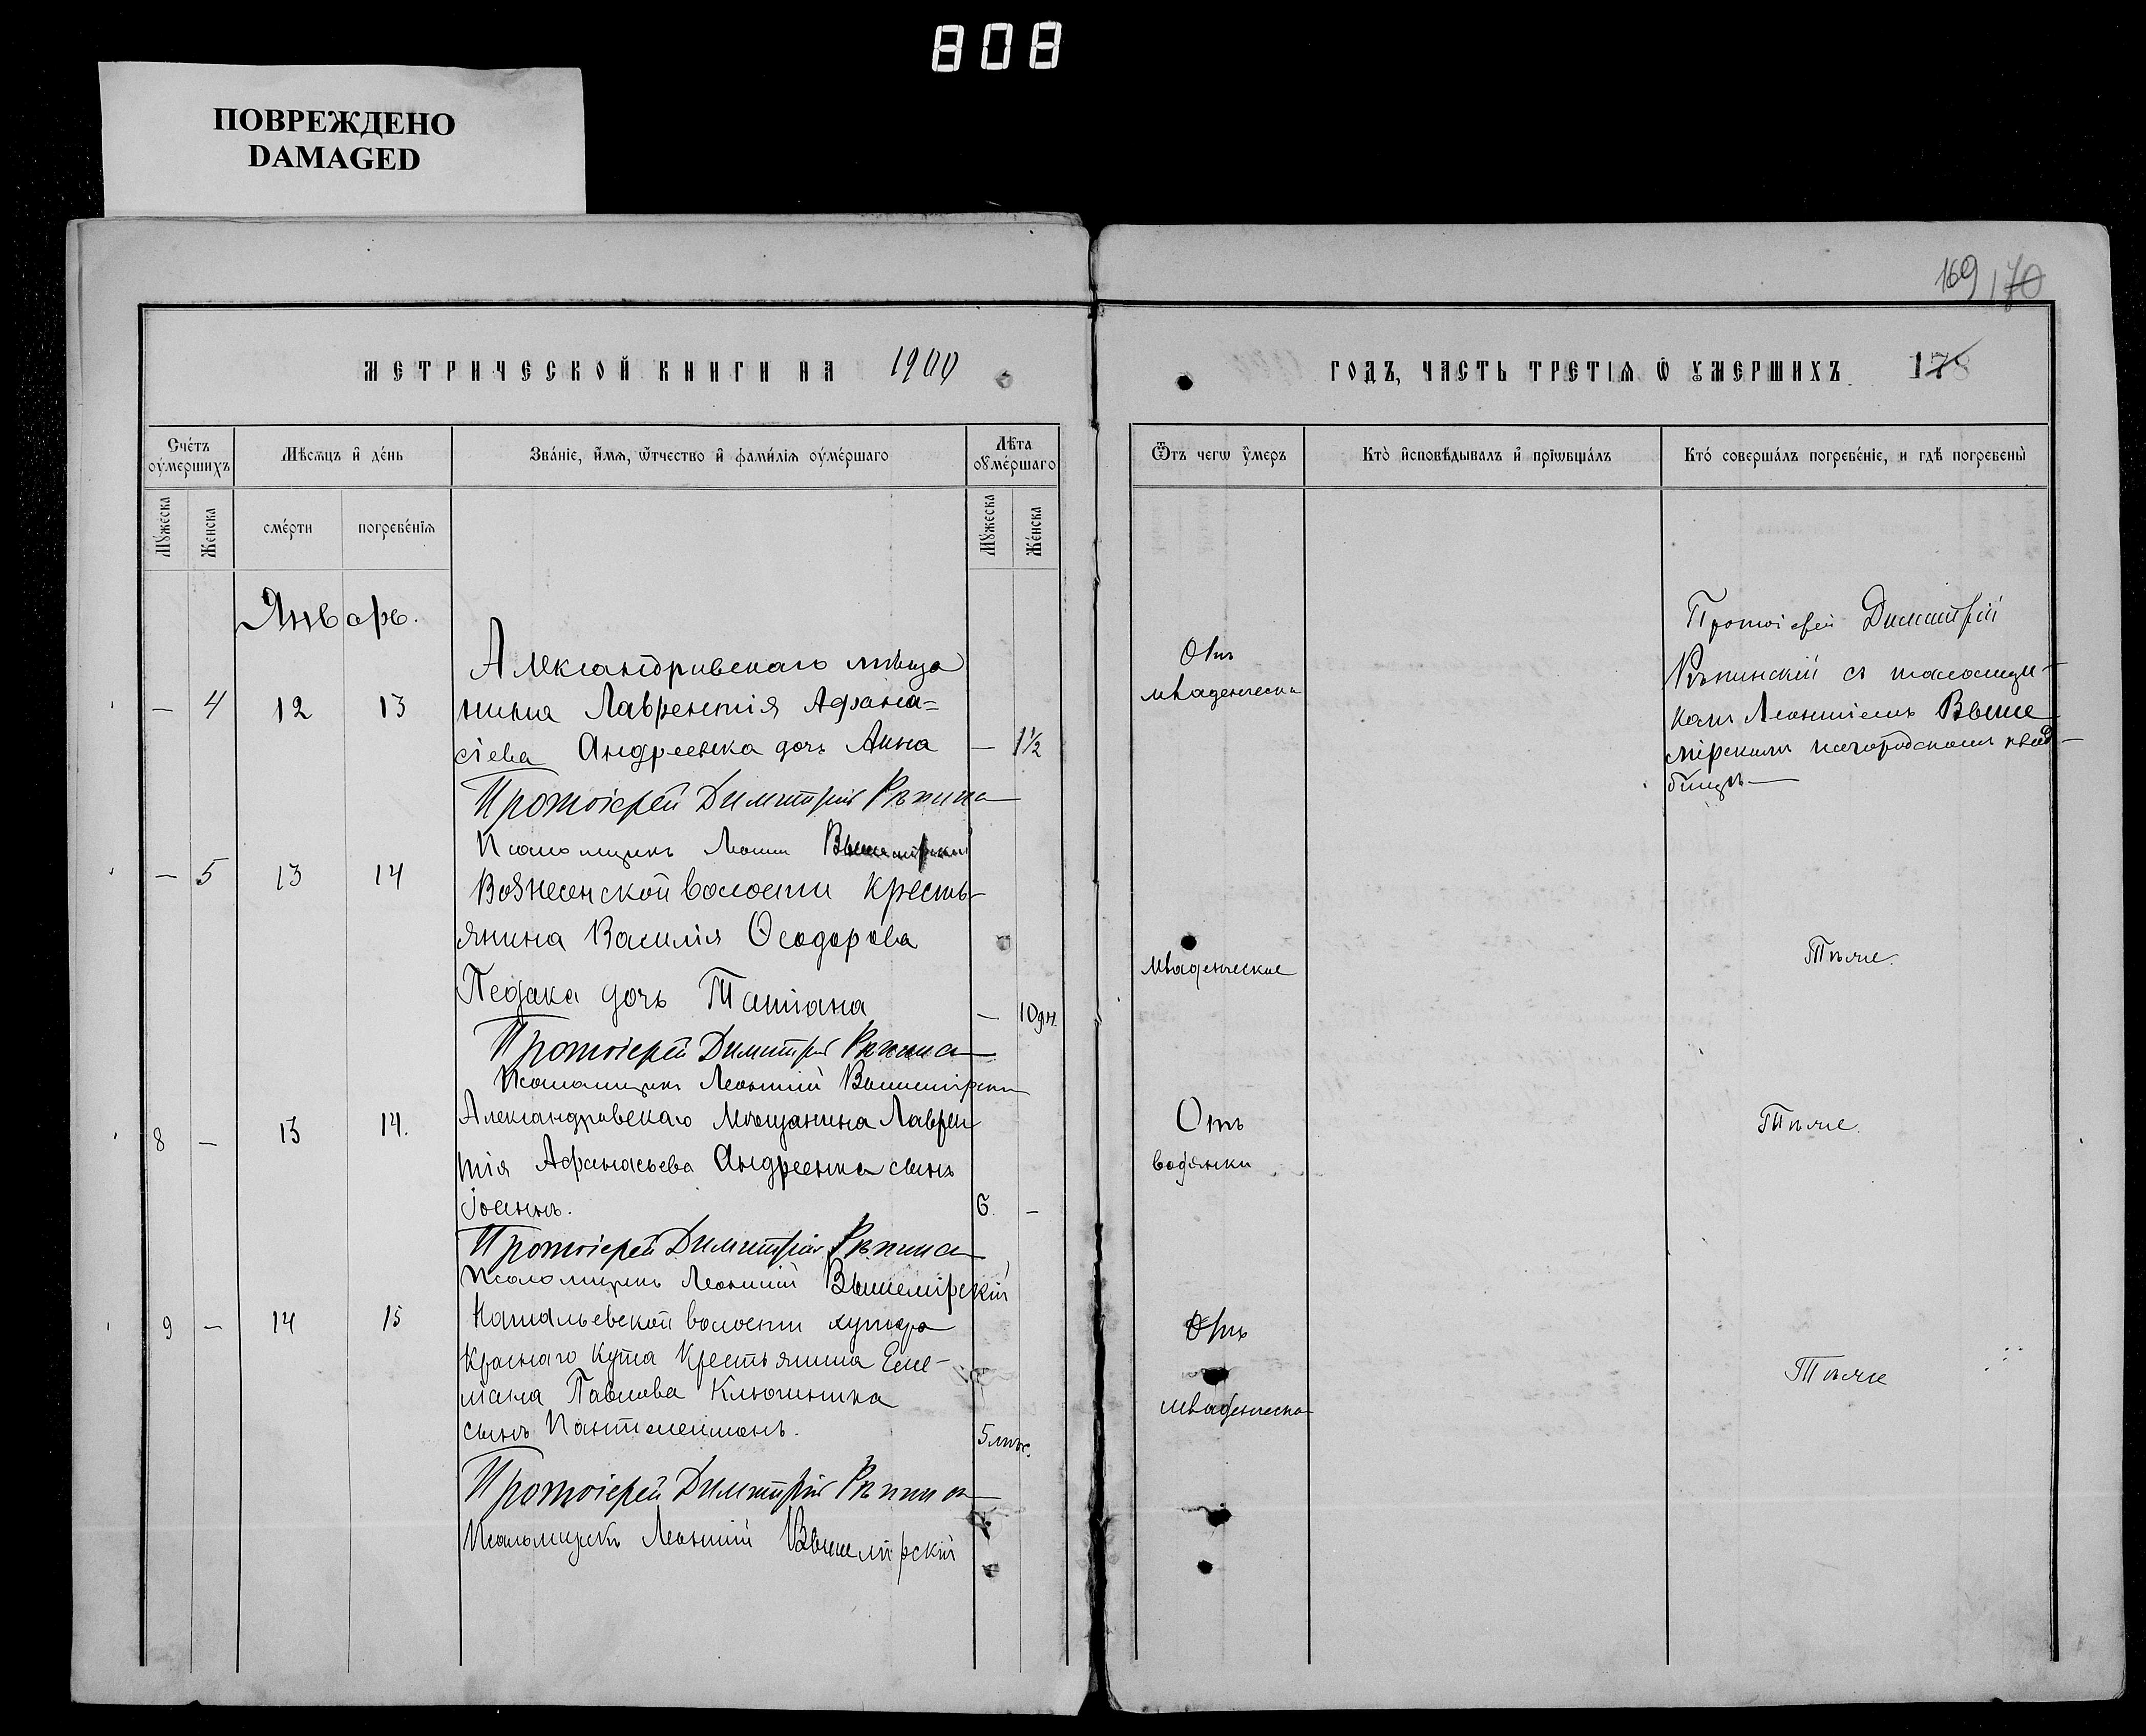 808
ПОВРЕЖДЕНО
DAMAGED
169 170
МЕТРИЧЕСКОЙ КНИГИ НА 1900
ГОДЪ, ЧАСТЬ ТРЕТІѦ Ѿ УМЕРШИХЪ. 178
Счéтъ оу́мершихъ
Мѣсѧцъ и҆ дéнь
Звáніе, и҆́мѧ, ѿтчество и҆ фами́лїѧ оумéршаго
Лѣта оу́мéршаго
Ѿтъ чегѡ ўмеръ
Кто̀ и҆сповѣдывалъ и҆ прїѡбщáлъ
Ктó совершáлъ погребéнїе, и гдѣ погребены̀
Мꙋжеска
Жéнска
смéрти
погребéнїѧ
Мꙋжеска
Жéнска
Январь.
— 4 12 13
Александровскаго мѣща
нина Лаврентія Афана=
сіева Андреенка дочь Анна
— 1½
Отъ
младенческа
Протоіерей Димитрій
Рѣпинскій съ псаломщи-
комъ Леонтіемъ Выше
мірскимъ на городскомъ клад-
бищѣ
Протоіерей Димитрій Рѣпина
Псаломщикъ Леонт Вышемірскій
— 5 13 14
Вознесенской волости кресть-
янина Василія Ѳеодорова
Педака дочь Татіана
— 10 дн.
младенческое
Тѣже.
Протоіерей Димитрій Рѣпина
Псаломщикъ Леонтій Вышемірски
8 — 13 14.
Александровскаго мѣщанина Лаврен
тія Афанасьева Андреенка сынъ
Іоаннъ.
6. —
Отъ
водянки
Тѣже.
Протоіерей Димитрій Рѣпина
Псаломщикъ Леонтій Вышемірскій
9 — 14 15
Натальевской волости хутора
Краснаго Кута крестьянина Еме-
ліана Павлова Ключника
сынъ Пантелеймонъ.
5 мѣс.
Отъ
младенческа
Тѣже
Протоіерей Димитрій Рѣпина
Псаломщикъ Леонтій Вышемірскій